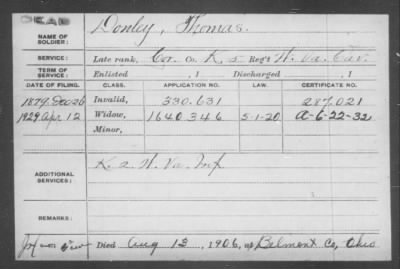 DEAD
NAME OF SOLDIER: Donley, Thomas.
SERVICE: Late rank, Cor. Co. K, 5 Reg't W. Va. Cav.
TERM OF SERVICE: Enlisted , 1 Discharged , 1
DATE OF FILING. CLASS. APPLICATION NO. LAW. CERTIFICATE NO.
1879 Dec 26 Invalid, 330.631 287.021
1929 Apr 12 Widow, 1640346 5-1-20 A-6-22-32
Minor,
ADDITIONAL SERVICES: K. 2 W. Va. Inf
REMARKS:
Died Aug 13, 1906, at Belmont Co, Ohio